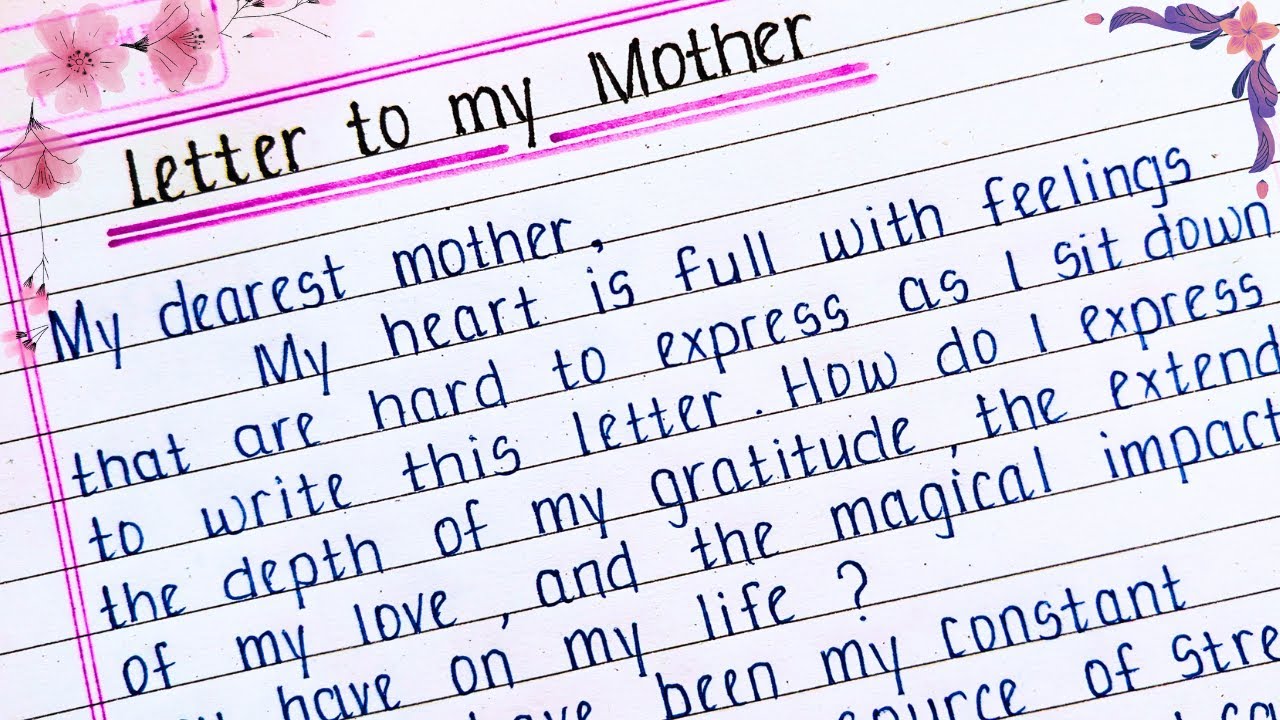 Letter to my Mother
My dearest mother,
My heart is full with feelings
that are hard to express as I sit down
to write this letter. How do I express
the depth of my gratitude, the extend
of my love, and the magical impact
have on my life ?
been my constant
of